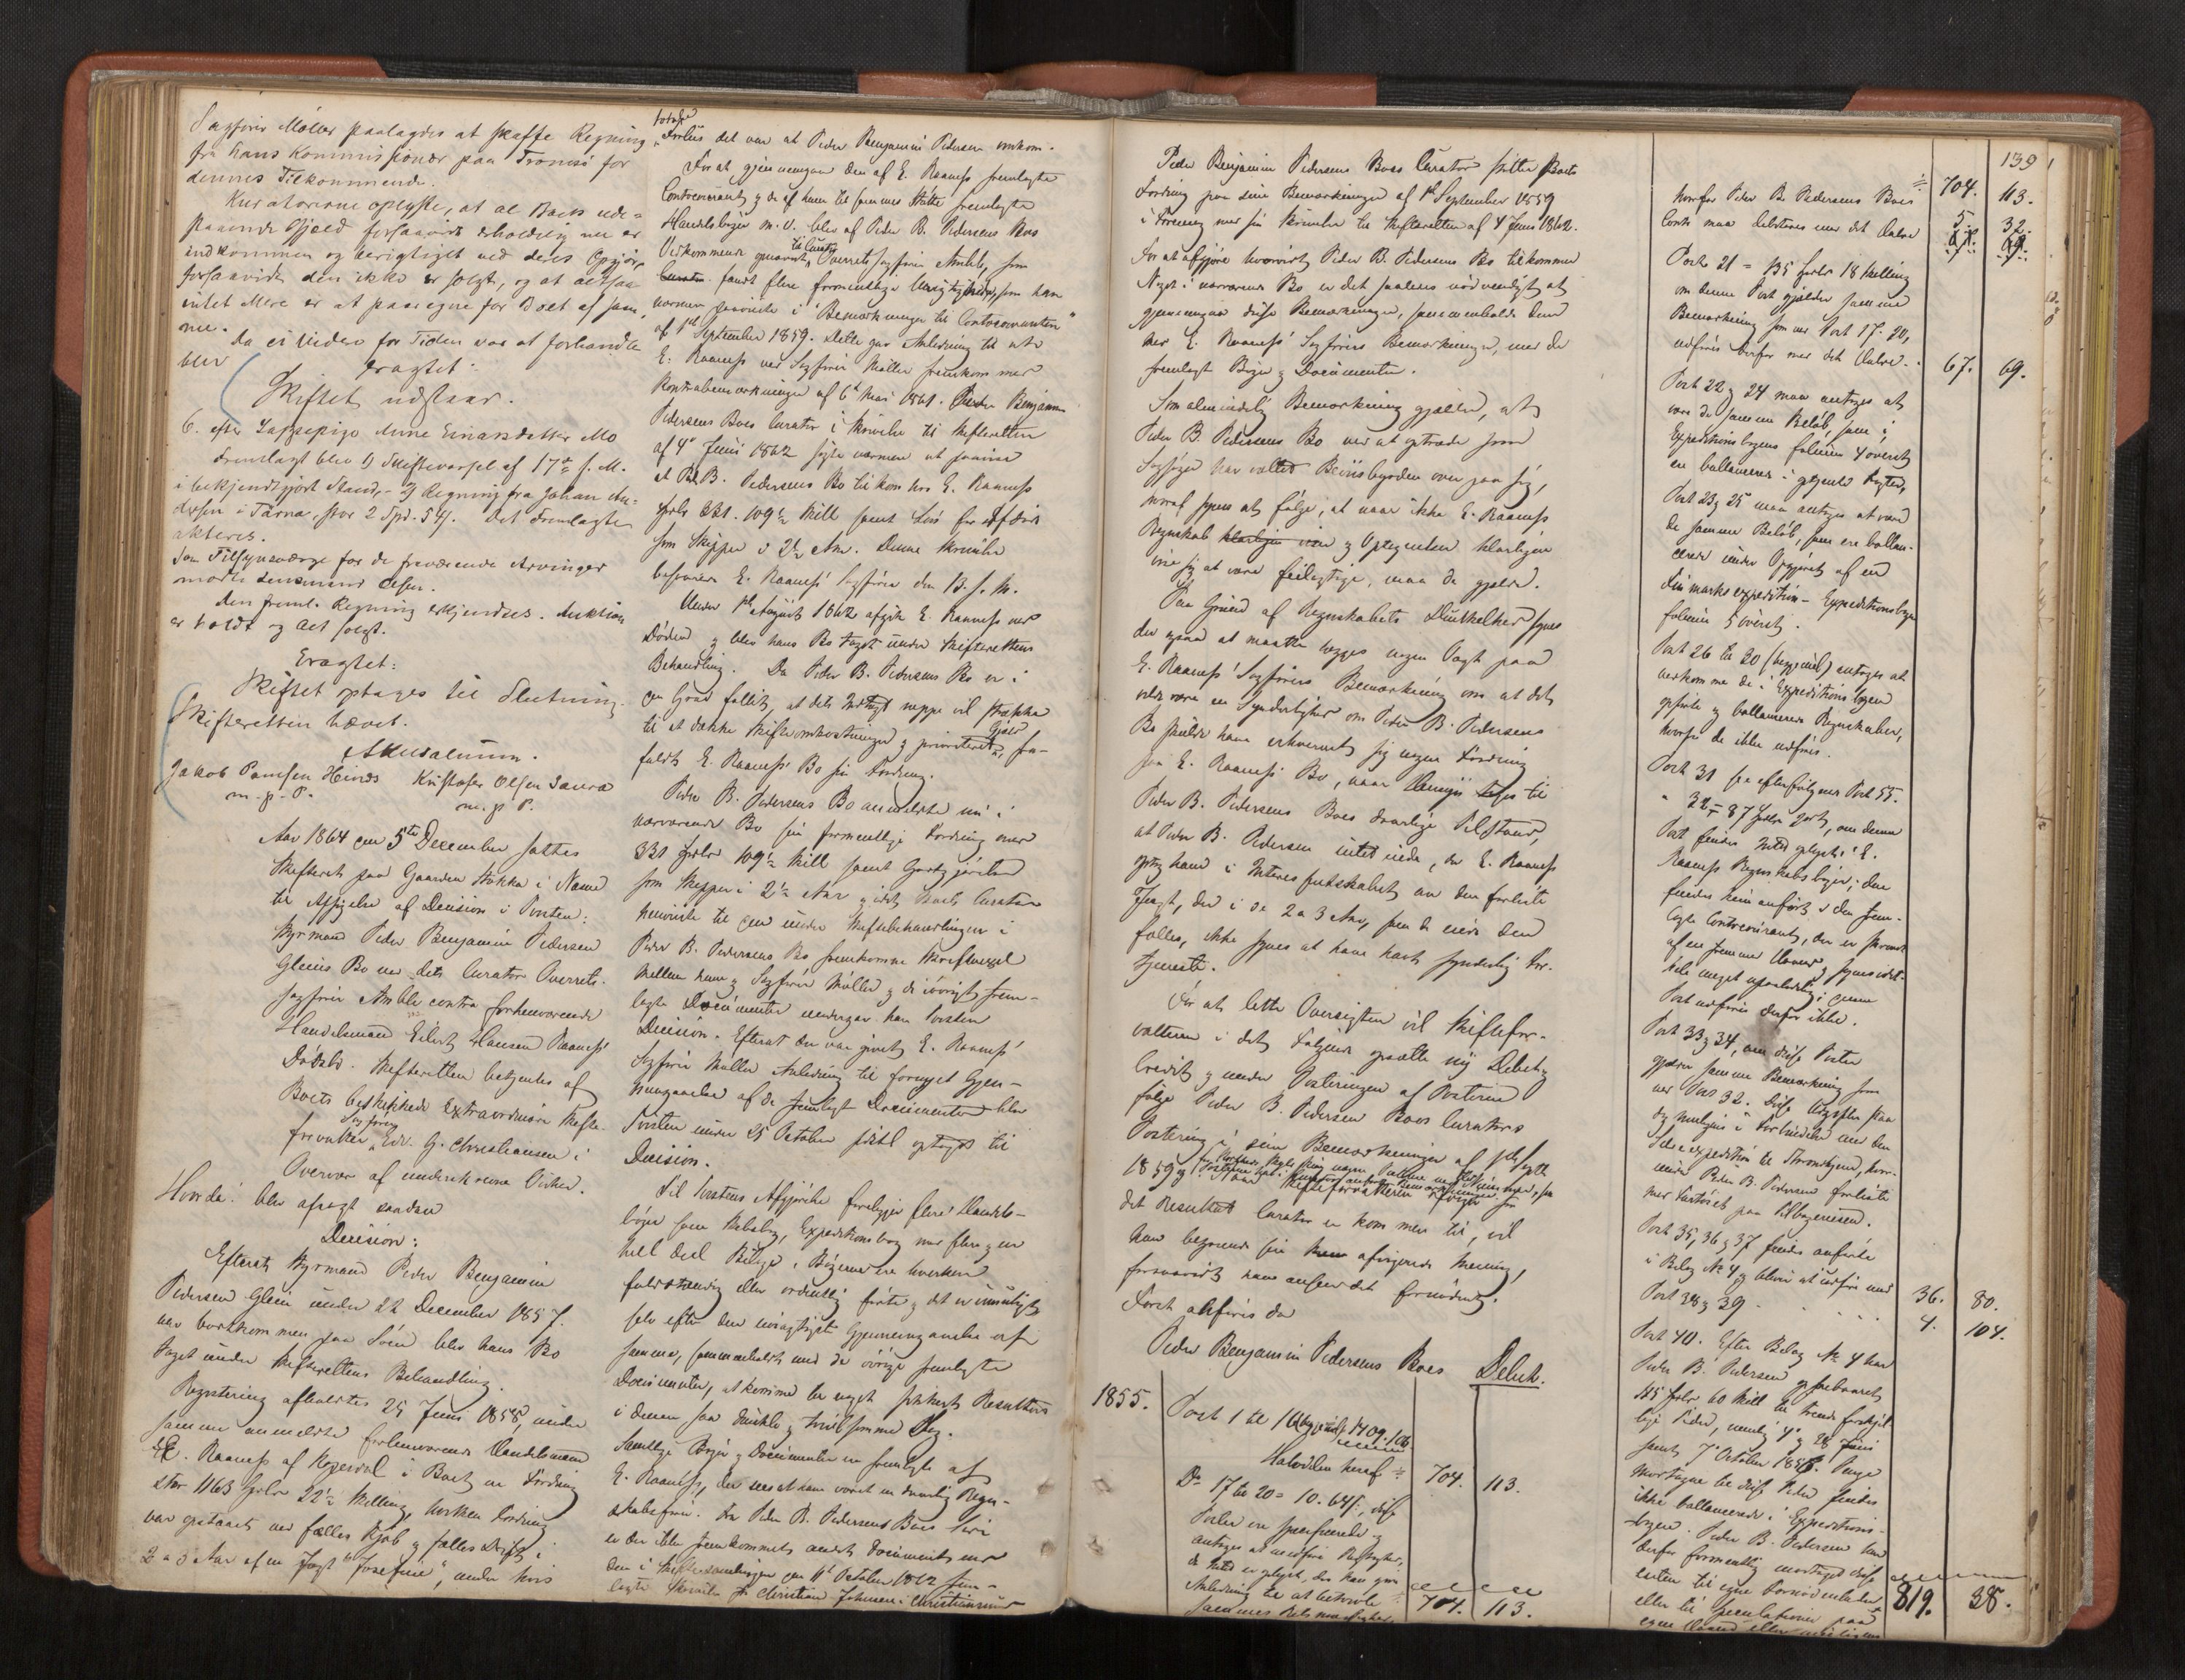 Sagfører Møller paalagdes at skaffe Regning
fra hans Kommissionær paa Tromsø for
dennes Tilkommende.
Kuratorerne oplyste, at al Boets ude-
staaende Gjæld forsaavidt erholdelig nu er
indkommen og berigtiget ved dets Opgjør,
forsaavidt den ikke er solgt, og at altsaa
intet Mere er at paaregne for Boet af sam-
me.
Da ei videre for Tiden var at forhandle
blev
eragtet:
Skiftet udstaar.
6. efter Lappepige Anne Einarsdatter Mo
Fremlagt blev 1) Skiftevarsel af 17de f. M.
i bekjendtgjort Stand, - 2) Regning fra Johan An-
dersen i Tärna, stor 2 Spd. 54 s. Det Fremlagte
akteres.
Som Tilsynsværge for de fraværende Arvinger
mødte Lensmand Olsen.
Den freml. Regning erkjendtes. Auktion
er holdt og Alt solgt.
Eragtet:
Skiftet optages til Slutning.
Skifteretten hævet.
Jakob Paulsen Heinds Kristofer Olsen Saura
m. p. P. m. p. P.
Aar 1864 den 5te December sattes
Skifteret paa Gaarden Stokka i
til Afsigelse af Decision i Tvisten:
Styrmand Peder Benjamin Pedersen
Gleins Bo ved dets Curator Overrets-
sagfører Amble contra forhenværende
Handelsmand Eilert Hansen Raanes'
Dødsbo. Skifteretten betjentes af
Boets beskikkede Extraordinaire Skifte-
forvalter, Sagfører Edv. G. Christiansen i
Overvær af underskrevne Vidner.
Hvorda: blev afsagt saadan
Decision:
Efterat Styrmand Peder Benjamin
Pedersen Glein under 22 December 1857.
var bortkommen paa Søen blev hans Bo
taget under Skifterettens Behandling.
Registrering afholdtes 25 Juni 1858, under
samme anmeldte forhenværende Handelsmand
E. Raanes af i Boet en Fordring
stor 1163 Spdlr 22½ Skilling, hvilken Fordring
var opstaaet ved fælles Kjøb og fælles Drift i
2 a 3 Aar af en Jagt "Josefine", under hvis
totale
Forliis det var at Peder Benjamin Pedersen omkom.
For at gjennemgaa den af E. Raanes fremlagte
Contocourant og de af ham til sammes Støtte fremlagte
Handelsbøger m. v. blev af Peder B. Pedersens Boes
Vedkommende til Curator Overretssagfører Amble, som
fandt flere formentlige Urigtigheder, som han
nærmere paaviste i "Bemærkninger til Contocouranten"
af 1ste September 1859. Dette gav Anledning til at
E. Raanes ved Sagfører Møller fremkom med
Kontrabemærkninger af 6te Mai 1861. Peder Benjamin
Pedersens Boes Curator i Skrivelse til Skifteretten
af 4de Juni 1862 søgte nærmere at paavise
at Ped. B. Pedersens Bo tilkom hos E. Raanes
Spdlr 331. 109½ Skill samt Løn for
som Skipper i 2½ Aar. Denne Skrivelse
besvarede E. Raanes' Sagfører den 13. s. M.
Under 1ste August 1862 afgik E. Raanes ved
Døden og blev hans Bo tagt under Skifterettens
Behandling. Da Peder B. Pedersens Bo er i
en Grad fallit, at dets Indtægt neppe vil strække
til at dække Skifteomkostninger og prioriteret Gjæld, fra-
faldt E. Raanes' Bo sin Fordring.
Peder B. Pedersens Bo anmeldte nu i
nærværende Bo sin formentlige Fordring med
331 Spdlr 109½ Skill samt Godtgjørelse
som Skipper i 2½ Aar og idet Boets Curator
henviste til den under Skiftebehandlingen i
Peder B. Pedersens Bo fremkomne Skriftvexel
mellem ham og Sagfører Møller og de iøvrigt frem-
lagte Documenter undergav han Tvisten
Decision. Efterat der var givet E. Raanes'
Sagfører Møller Anledning til fornyet Gjen-
nemgaaelse af de fremlagte Documenter blev
Tvisten under 25 October sidstl optagt til
Decision.
Til Tvistens Afgjørelse foreligger flere Handels-
bøger som Kladdebog, Expeditionsbog med flere og en
heel Deel Bilage. Bøgerne ere hverken
fuldstændig eller ordentlig førte og det er umuligt
selv efter den nøiagtigste Gjennemgaaelse af
samme, sammenholdt med de øvrige fremlagte
Documenter, at komme til noget sikkert Resultat
i denne saa dunkle og tvivlsomme Sag.
Samtlige Bøger og Documenter er fremlagte af
E. Raanes, der sees at have været en daarlig Regn-
skabsfører. Fra Peder B. Pedersens Boes Side
er der ikke fremkommet andet Document end
den i Skiftesamlingen den 11te October 1862 frem-
lagte Skrivelse fra Christian Johnsen i Christianssund
139
Peder Benjamin Pedersens Boes Curator støtter Boets
Fordring paa sine Bemærkninger af 1ste September 1859
i Forening med sin Skrivelse til Skifteretten af 4 Juni 1862.
For at afgjøre hvorvidt Peder B. Pedersens Bo tilkommer
Noget i nærværende Bo er det saaledes nødvendigt at
gjennemgaa disse Bemærkninger, sammenholde dem
med E. Raanes' Sagførers Bemærkninger, med de
fremlagte Bøger og Documenter.
Som almindelig Bemærkning gjælder, at
Peder B. Pedersens Bo ved at optræde som
Sagsøger har væltet Beviisbyrden over paa sig,
hvoraf synes at følge, at naar ikke E. Raanes
Regnskab og Optegnelser klarligen
vise sig at være feilagtige, maa de gjælde.
Paa Grund af Regnskabets Dunkelhed synes
der ogsaa at maatte lægges nogen Vægt paa
E. Raanes' Sagførers Bemærkning om at det
vilde være en Synderlighed om Peder B. Pedersens
Bo skulde have erhvervet sig nogen Fordring
paa E. Raanes' Bo, naar Hensyn tages til
Peder B. Pedersens Boes daarlige Tilstand,
at Peder B. Pedersen intet eiede, da E. Raanes
optog ham i Interessentskabet om den forliste
Jagt, der i de 2 a 3 Aar, som de eiede den
fælles, ikke synes at have havt synderlig For-
tjeneste.
For at lette Oversigten vil Skiftefor-
valteren i det Følgende opsætte ny Debet og
Credit og under Posteringen af Posterne
følge Peder B. Pedersens Boes Curators
Postering i sine Bemærkninger af 1ste Septbr
1859 og Naar Skifteforvalteren
det Resultat Curator er kommen til, vil
han begrunde sin afvigende Mening,
forsaavidt han anseer det fornødent.
Først anføres da
Peder Benjamin Pedersens Boes Debet.
1855. Post 1 til 16 1409. 106
Halvdelen heraf 704. 113.
Do 17 til 20 = 10. 64 s; disse
Poster ere specificerede og
antages at medføre Rigtighed,
da Intet er oplyst, der kan give
Anledning til at betvivle
sammes Retmæssighed
704. 113.
704. 113.
hvorfor Peder B. Pedersens Boes
Conto maa debiteres med det Halve 5. 32.
Post 21 = 135 Spdlr 18 Skilling
om denne Post gjælder samme
Bemærkning som ved Post 17-20,
udføres derfor med det Halve. 67. 69.
Post 22 og 24 maa antages at
være de samme Beløb, som i
Expeditionsbogens folium 4 øverst
er ballanceret i
Post 23 og 25 maa antages at være
de samme Beløb, som ere ballan-
cerede under Opgjøret af en
Finmarksexpedition - Expeditionsbogens
folium 5 øverst.
Post 26 til 30 (begge incl) antages at
vedkomme de i Expeditionsbogen
opførte og ballancerede Regnskaber,
hvorfor de ikke udføres.
Post 31 see efterfølgende Post 55.
" 32 = 87 Spdlr om denne
Post findes Intet oplyst i E.
Raanes Regnskabsbøger; den
findes kun anført i den frem-
lagte Contocourant, der er skrevet
af en fremmed Haand og synes
meget upaalidelig; denne
Post udføres derfor ikke.
Post 33 og 34, om disse Poster
gjælder samme Bemærkning som
ved Post 32. Disse Udgifter staa
og muligens i Forbindelse med den
Sildeexpedition til Throndhjem, hvor-
under Peder B. Pedersen forliste
med Fartøiet paa Tilbagereisen.
Post 35, 36 og 37 findes anførte
i Bilag No 4 og bliver at udføre med 36. 80.
Post 38 og 39 . . . 4. 104.
Post 40. Efter Bilag No 4 har
Peder B. Pedersen
45 Spdlr 60 Skill til trende forskjel-
lige Tider, nemlig 4de og 28 Juni
samt 7de October 1856. Penge
modtagne til disse Tider findes
ikke ballancerede i Expeditions-
bogen. Peder B. Pedersen har
derfor formentlig modtaget disse
enten til egne Fornødenheder
eller til Speculationer paa
egen Haand eller
819. 38.